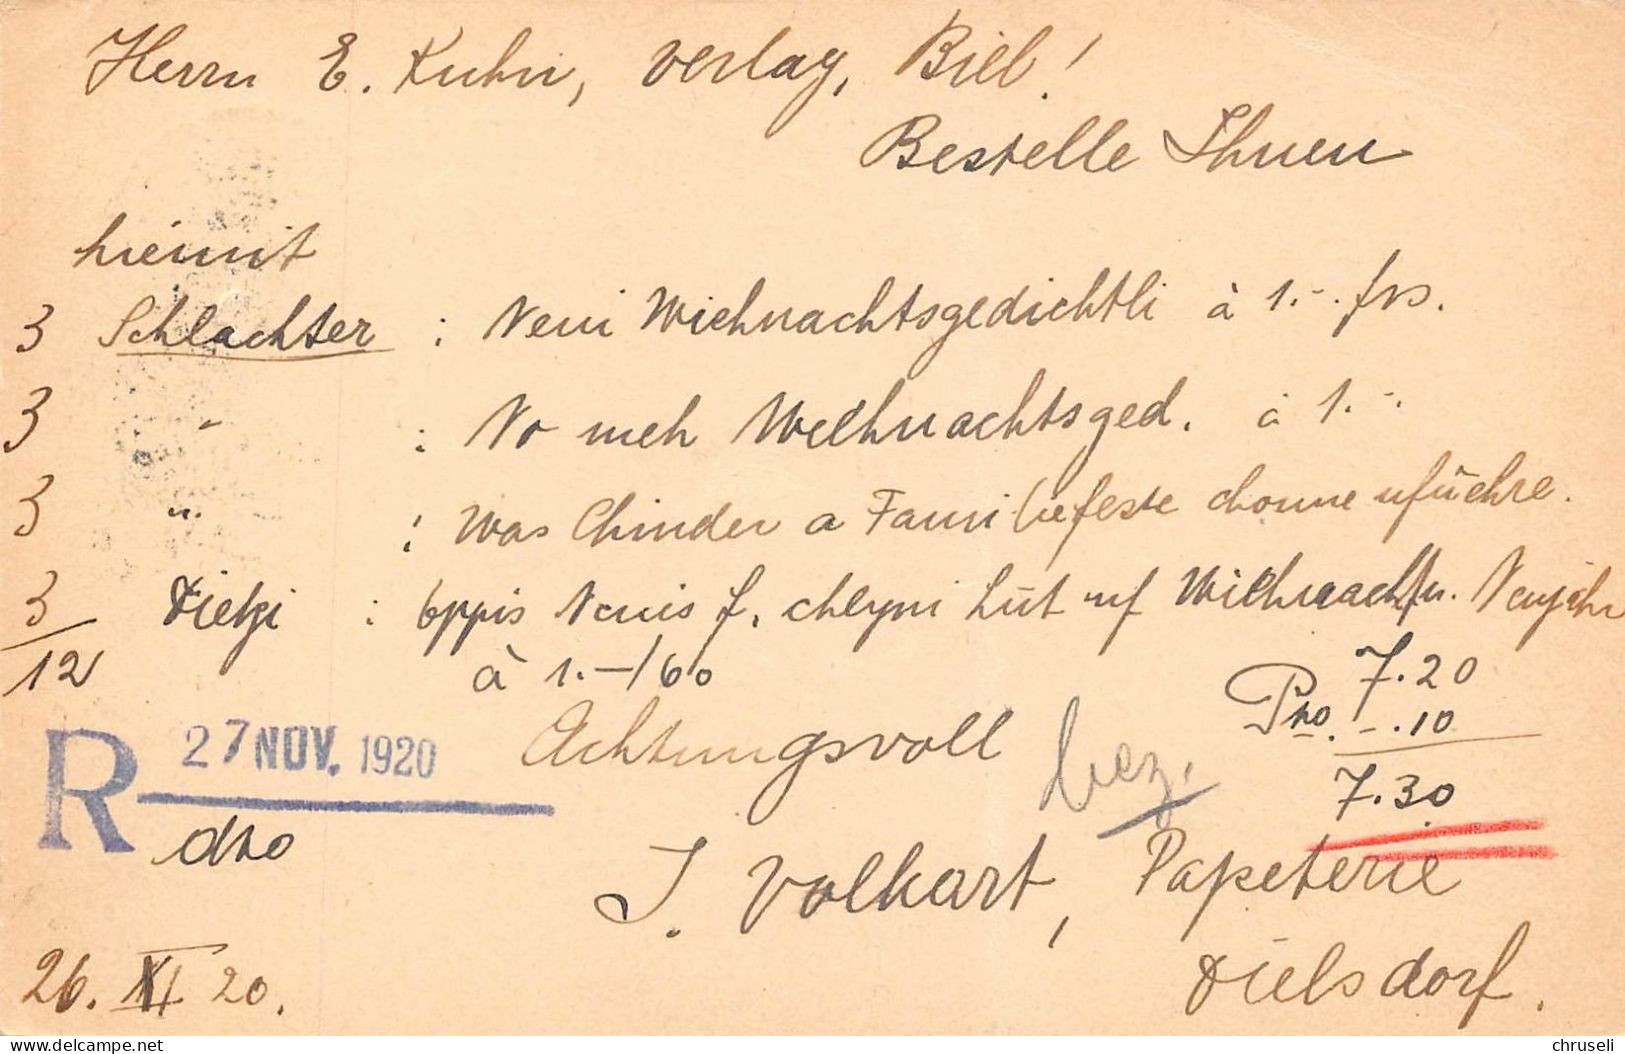 Herrn E. Kuhn, Verlag, Biel!
Bestelle Ihnen
hiemit
3 Schlachter : Neui Wiehnachtsgedichtli à 1.-. frs.
3 " : No meh Weihnachtsged. à 1.-.
3 " : Was Chinder a Familiefeste chönne ufführe.
3 Dietzi : öppis Neuis f. chlyni Lüt uf Wiehnacht u. Neujahr
12 à 1.-/60
7.20
Pto. -.10
7.30
Achtungsvoll
bez.
R 27 NOV. 1920
dto
J. Volkart, Papeterie
Dielsdorf.
26. XI 20.
delcampe.net
chruseli